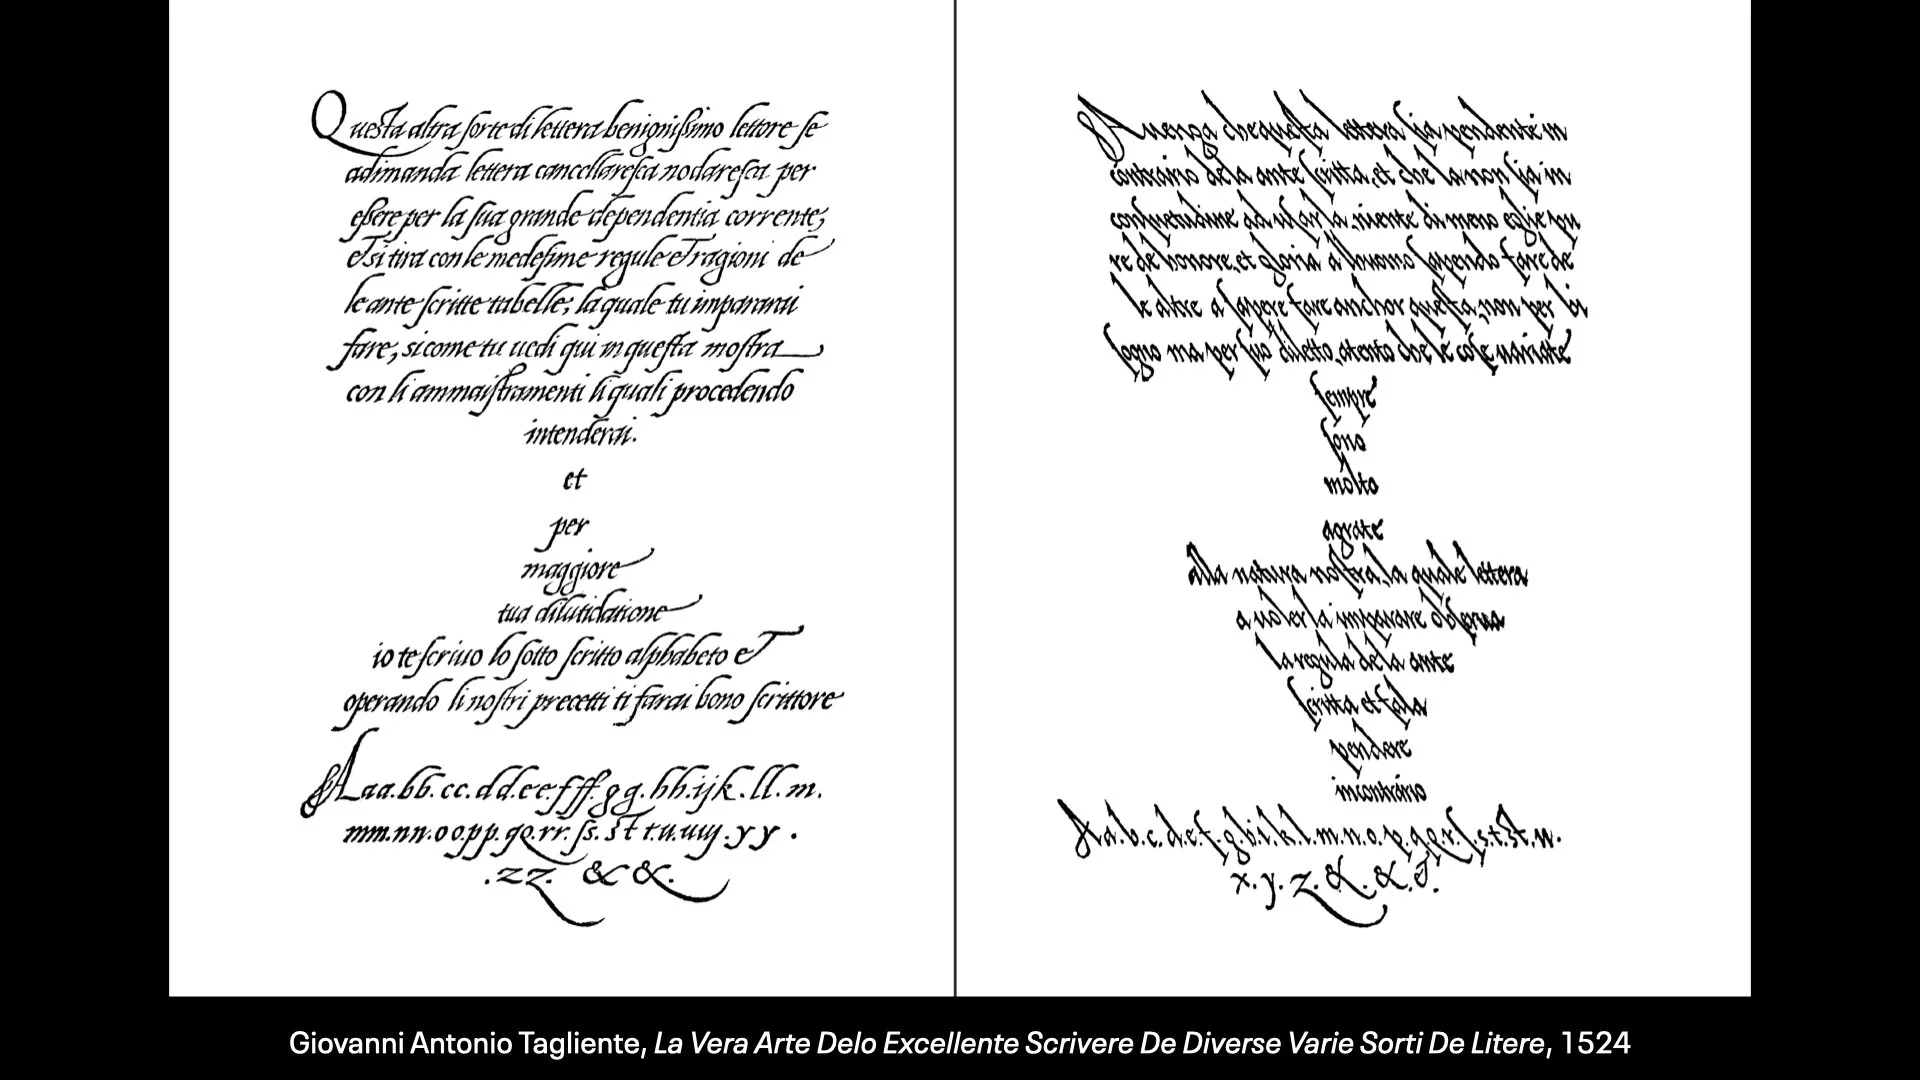 Questa altra sorte di lettera benignissimo lettore se
adimanda lettera cancellaresca nodaresca per
essere per la sua grande dependentia corrente,
et si tira con le medesime regule et ragioni de
le ante scritte tabelle, la quale tu impararai
fare, si come tu uedi qui in questa mostra
con li ammaistramenti li quali procedendo
intenderai.
et
per
maggiore
tua dilucidatione
io te scriuo lo sotto scritto alphabeto et
operando li nostri precetti ti farai bono scrittore
Aaa.bb.cc.dd.ee.fff.gg.hh.ijk.ll.m.
mm.nn.oopp.qq.rr.ss.st t.u.uuy.yy.
.zz. & &.
Auenga che questa lettera sia pendente in
contrario de la ante scritta, et che la non sia in
consuetudine ad usarla, niente di meno eglie pu
re de honore, et gloria a lhuomo sapendo fare de
le altre a sapere fare anchor questa, non per bi
sogno ma per suo diletto, atento che le cose uariate
sempre
sono
molto
agrate
alla natura nostra, la quale lettera
a uoler la imparare obserua
la regula de la ante
scritta et fala
pendere
incontrario
Aa.b.c.d.e.f.g.h.i.k.l.m.n.o.p.q.r.ſ.s.t.st.u.
x.y.z.&.&.
Giovanni Antonio Tagliente, La Vera Arte Delo Excellente Scrivere De Diverse Varie Sorti De Litere, 1524